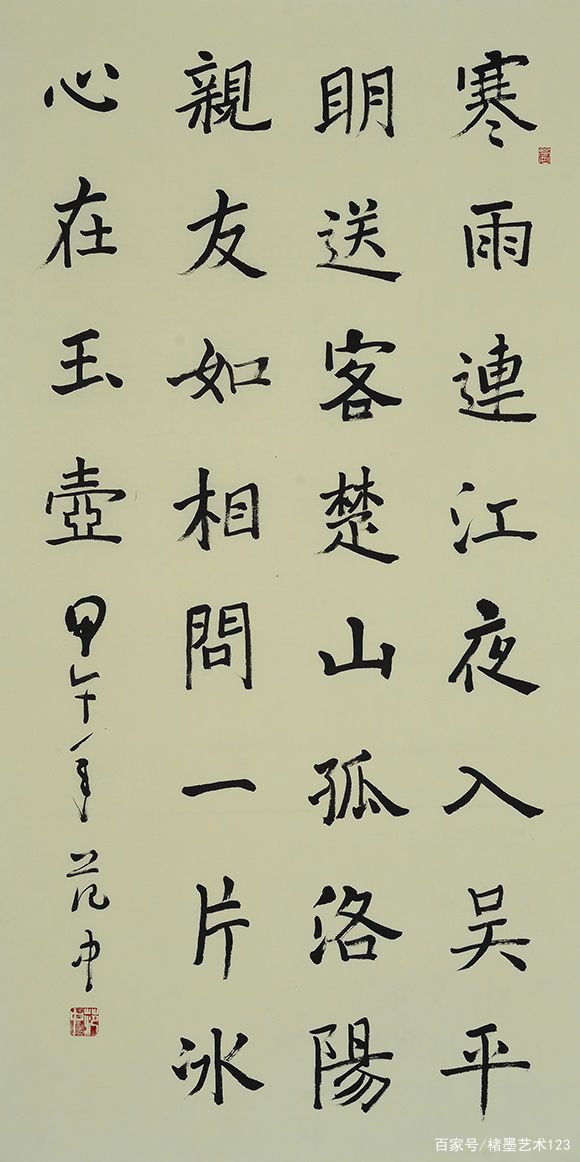 寒雨連江夜入吴平
明送客楚山孤洛陽
親友如相問一片冰
心在玉壺
甲午年 范中
百家号/楮墨艺术123